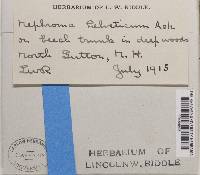 HERBARIUM OF L. W. RIDDLE.
Nephroma helveticum Ach
on beech trunk in deep woods
North Sutton, N. H.
LWR July 1915
HERBARIUM OF
LINCOLN W. RIDDLE